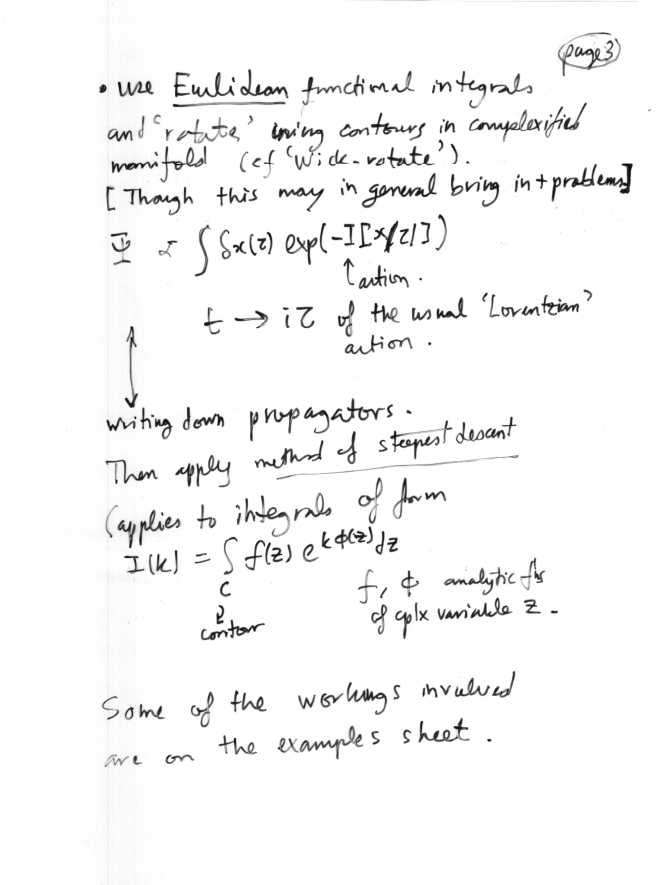 page 3
• use Euclidean functional integrals
and 'rotate' using contours in complexified
manifold (cf 'Wick-rotate').
[Though this may in general bring in + problems]
Ψ ∝ ∫ δx(τ) exp(-I[x(τ)])
↑ action.
t → iτ of the usual 'Lorentzian'
action.
writing down propagators.
Then apply method of steepest descent
(applies to integrals of form
I(k) = ∫ f(z) e^{kϕ(z)} dz
C
f, ϕ analytic fns
contour
of cplx variable z.
Some of the workings involved
are on the examples sheet.